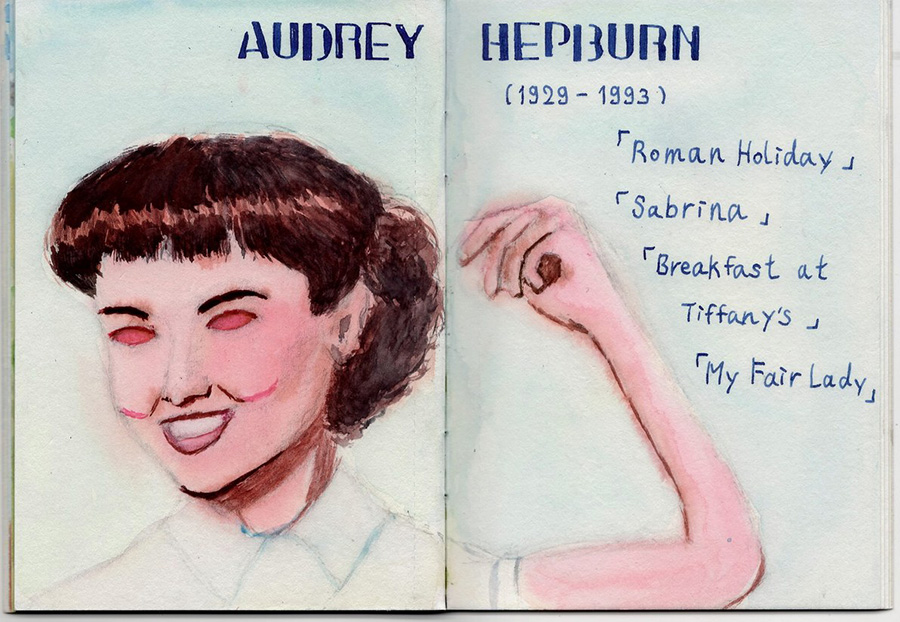 AUDREY HEPBURN
(1929-1993)
「Roman Holiday」
「Sabrina」
「Breakfast at
Tiffany's」
「My Fair Lady」